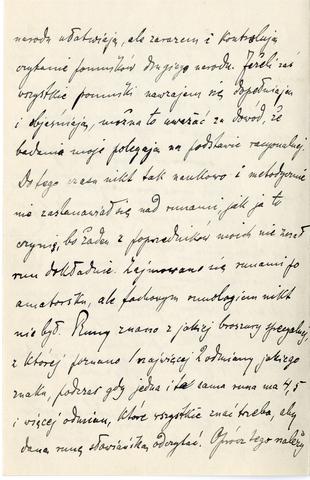 narodu ułatwiają, ale zarazem i kontrolują
czytanie pomników drugiego narodu. Jeżeli zaś
wszystkie pomniki nawzajem się dopełniają
i objaśniają, można to uważać za dowód, że
badania moje polegają na podstawie racyonalnej.
Do tego czasu nikt tak naukowo i metodycznie
nie zastanawiał się nad runami, jak ja to
czynię, bo żaden z poprzedników moich nie znał
run dokładnie. Zajmowano się runami po
amatorsku, ale fachowym runologiem nikt
nie był. Runy znano z jakiej broszury specyalnej,
z której poznano najwięcej 2 odmiany jakiego
znaku, podczas gdy jedna i ta sama runa ma 4, 5
i więcej odmian, które wszystkie znać trzeba, aby
daną runę słowiańską odczytać. Oprócz tego należy